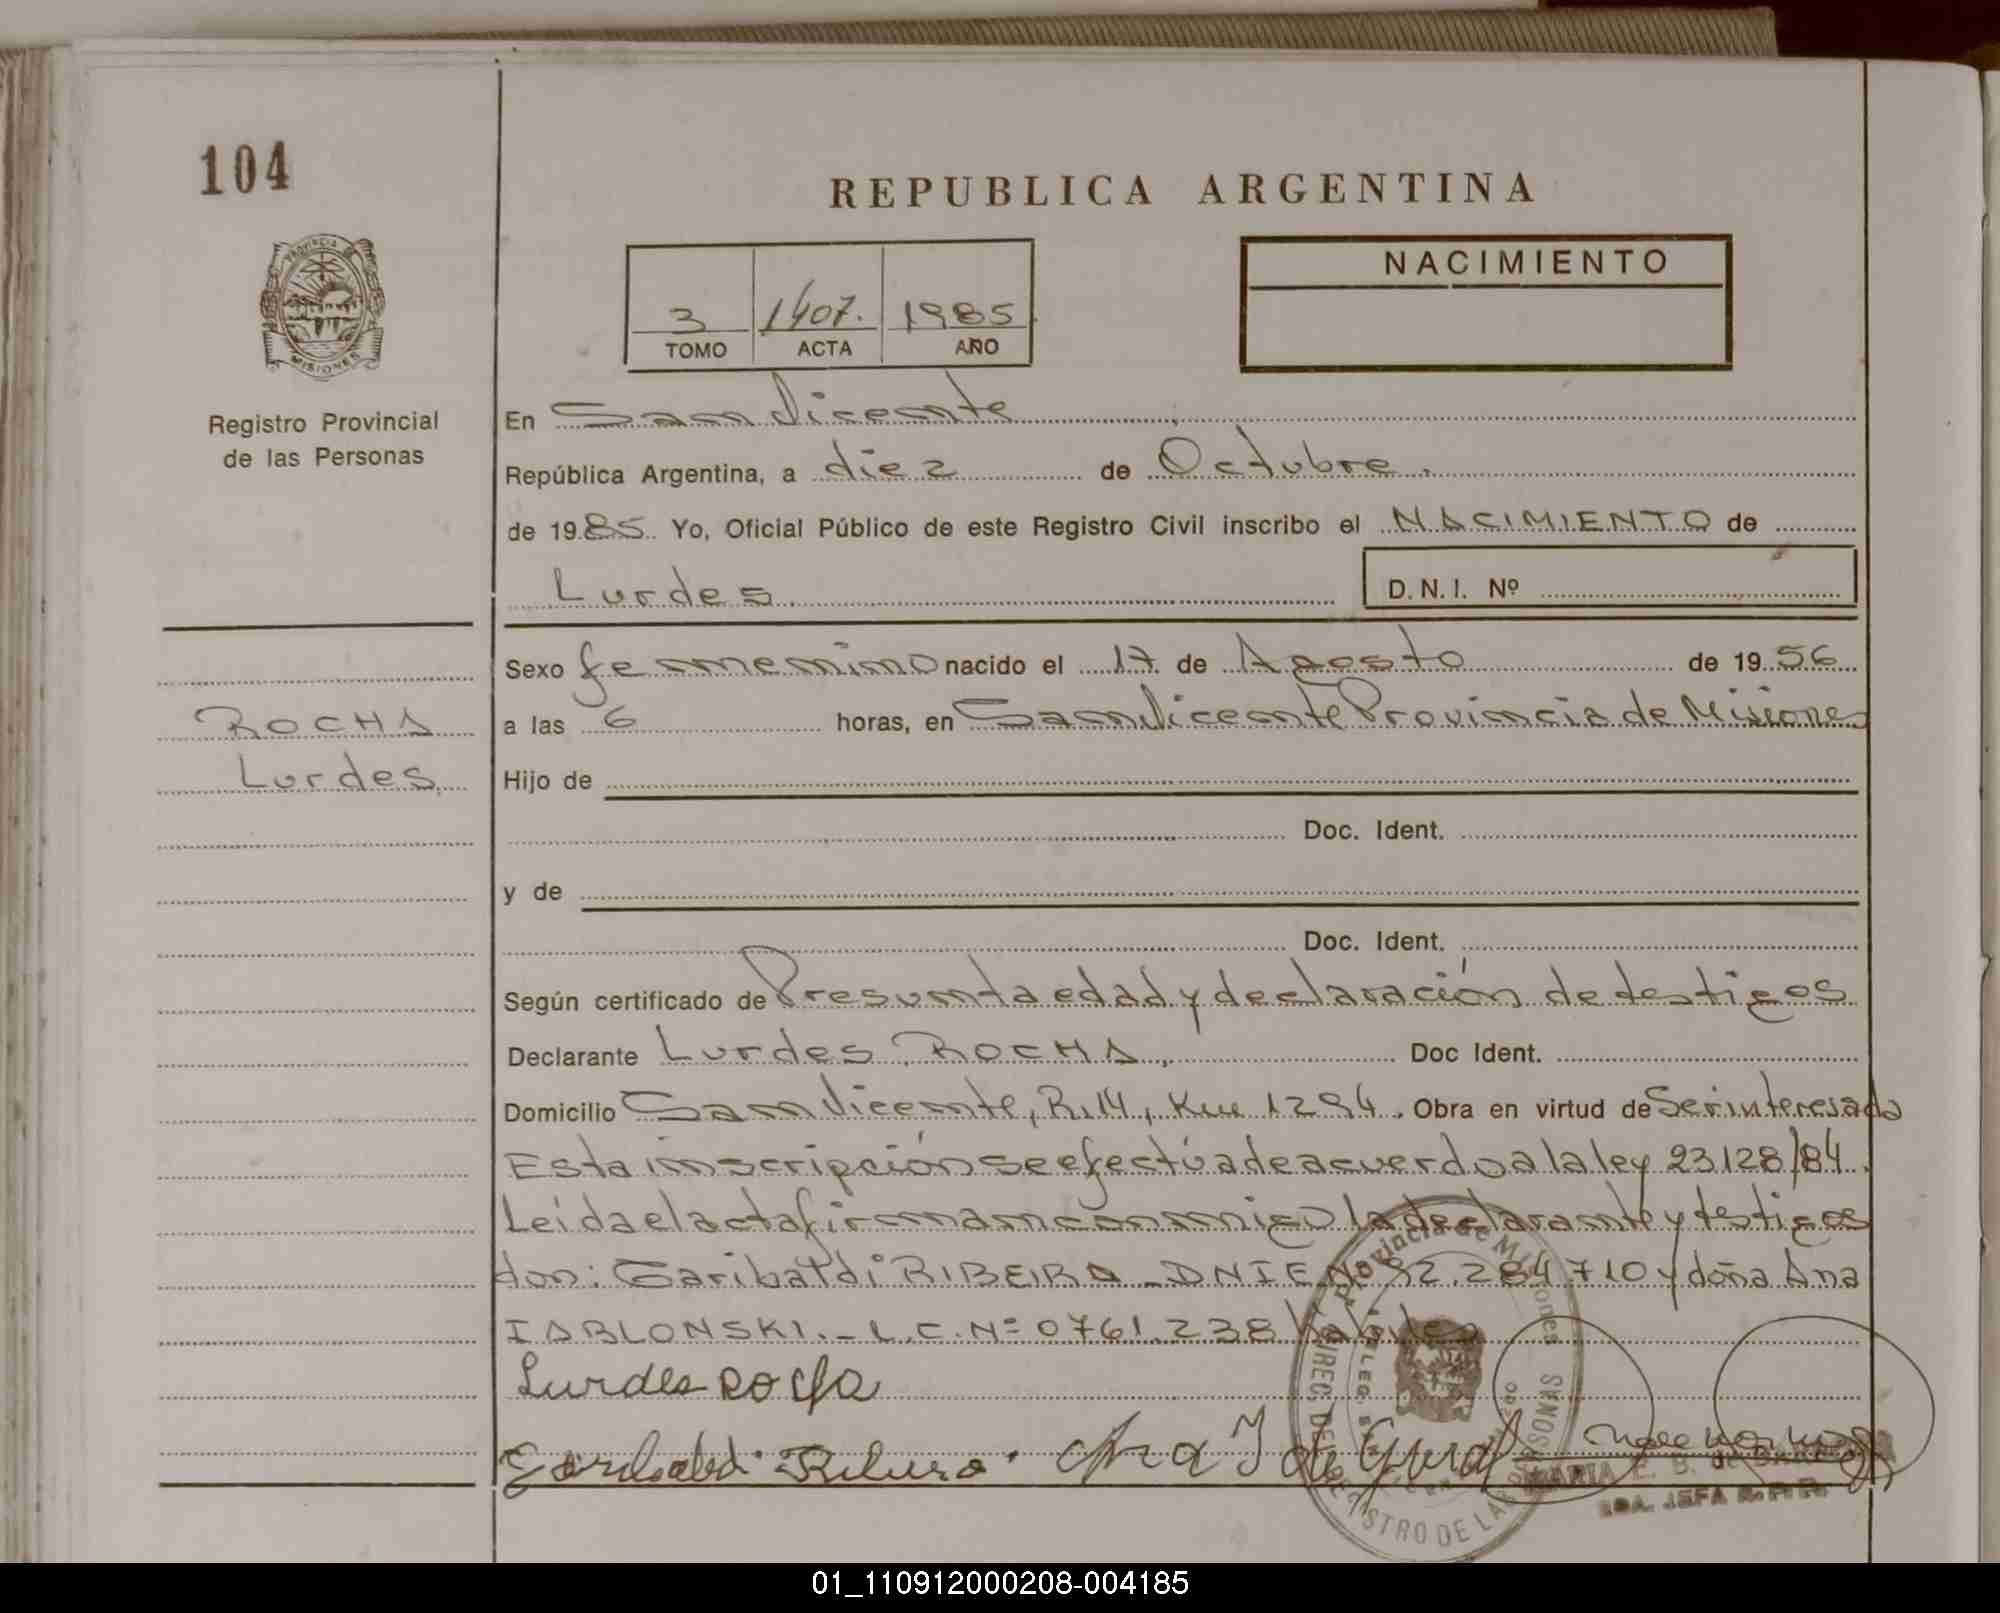 104
REPUBLICA ARGENTINA
PROVINCIA
MISIONES
Registro Provincial
de las Personas
3 1407. 1985
TOMO ACTA AÑO
NACIMIENTO
En San Vicente
República Argentina, a diez de Octubre.
de 1985. Yo, Oficial Público de este Registro Civil inscribo el NACIMIENTO de
Lurdes
D.N.I. Nº
Sexo femenino nacido el 17 de Agosto de 1956
a las 6 horas, en San Vicente Provincia de Misiones
ROCHA
Lurdes
Hijo de
Doc. Ident.
y de
Doc. Ident.
Según certificado de Presunta edad y declaración de testigos
Declarante Lurdes ROCHA, Doc Ident.
Domicilio San Vicente, R.14, Km 1294. Obra en virtud de Ser interesada
Esta inscripción se efectúa de acuerdo a la ley 23128/84.
Leída el acta firman conmigo la declarante y testigos
don: Garibaldi RIBEIRO - DNIE No 92.284.710 y doña Ana
IABLONSKI.- L.C. Nº 0761.238 hábiles
Lurdes Rocha
Garibaldi Ribeiro. Ana I de
Provincia de Misiones
DIREC. DEL REGISTRO DE LAS PERSONAS
MARIA E. B. de
JEFA R. P. P.
01_110912000208-004185